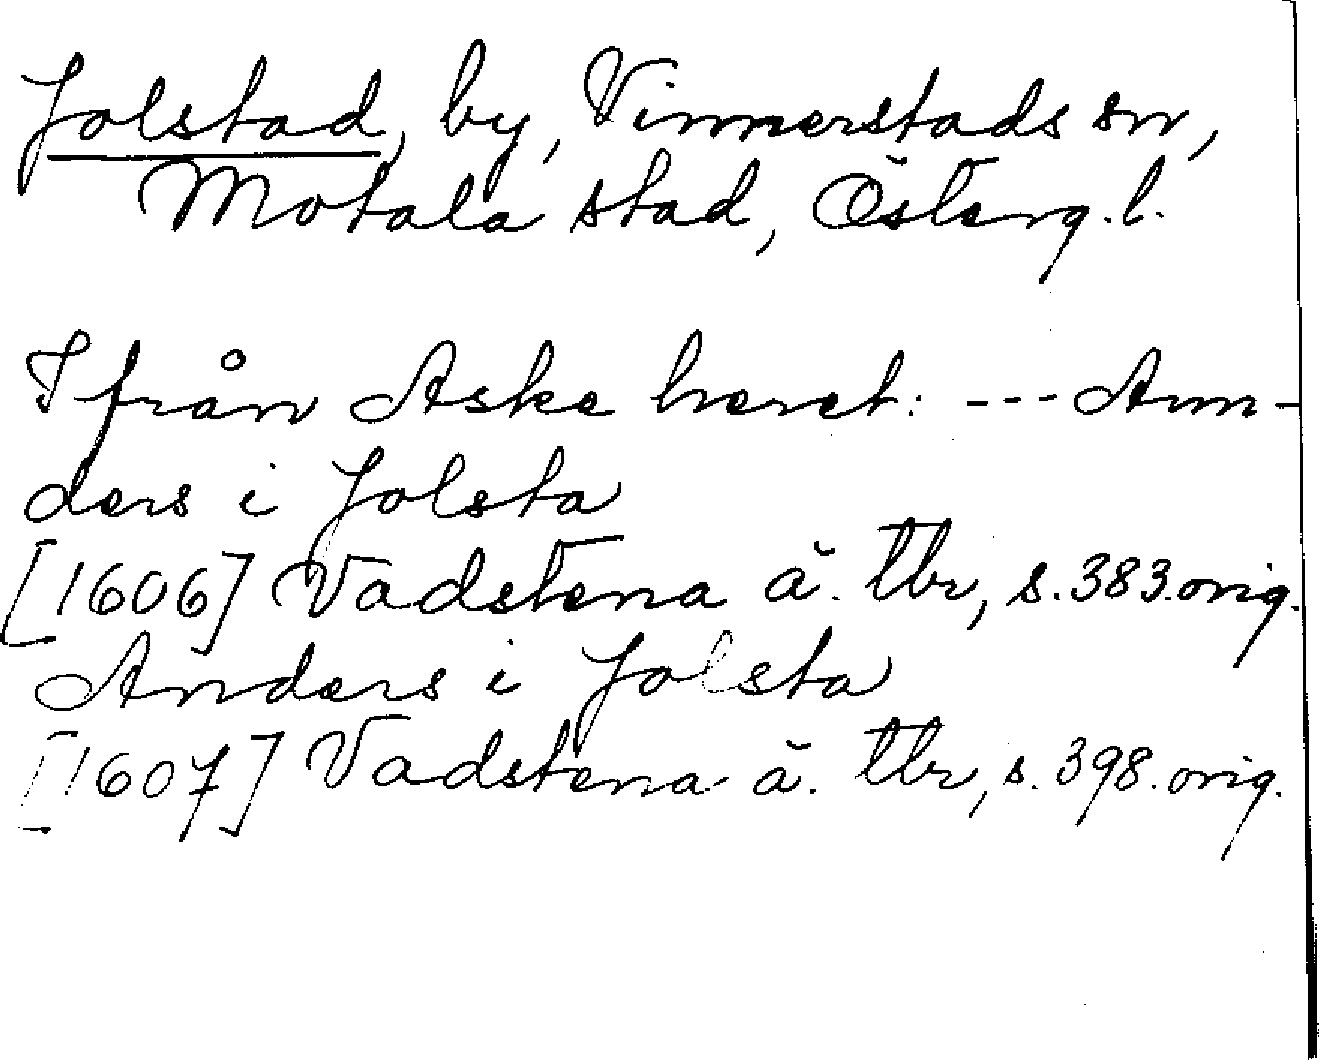 Jolstad, by, Vinnerstads sn,
Motala stad, Österg. l.
Ifrån Aske heret: --- Ann-
ders i Jolsta
[1606] Vadstena ä. tbr, s. 383. orig.
Anders i Jolsta
[1607] Vadstena ä. tbr, s. 398. orig.